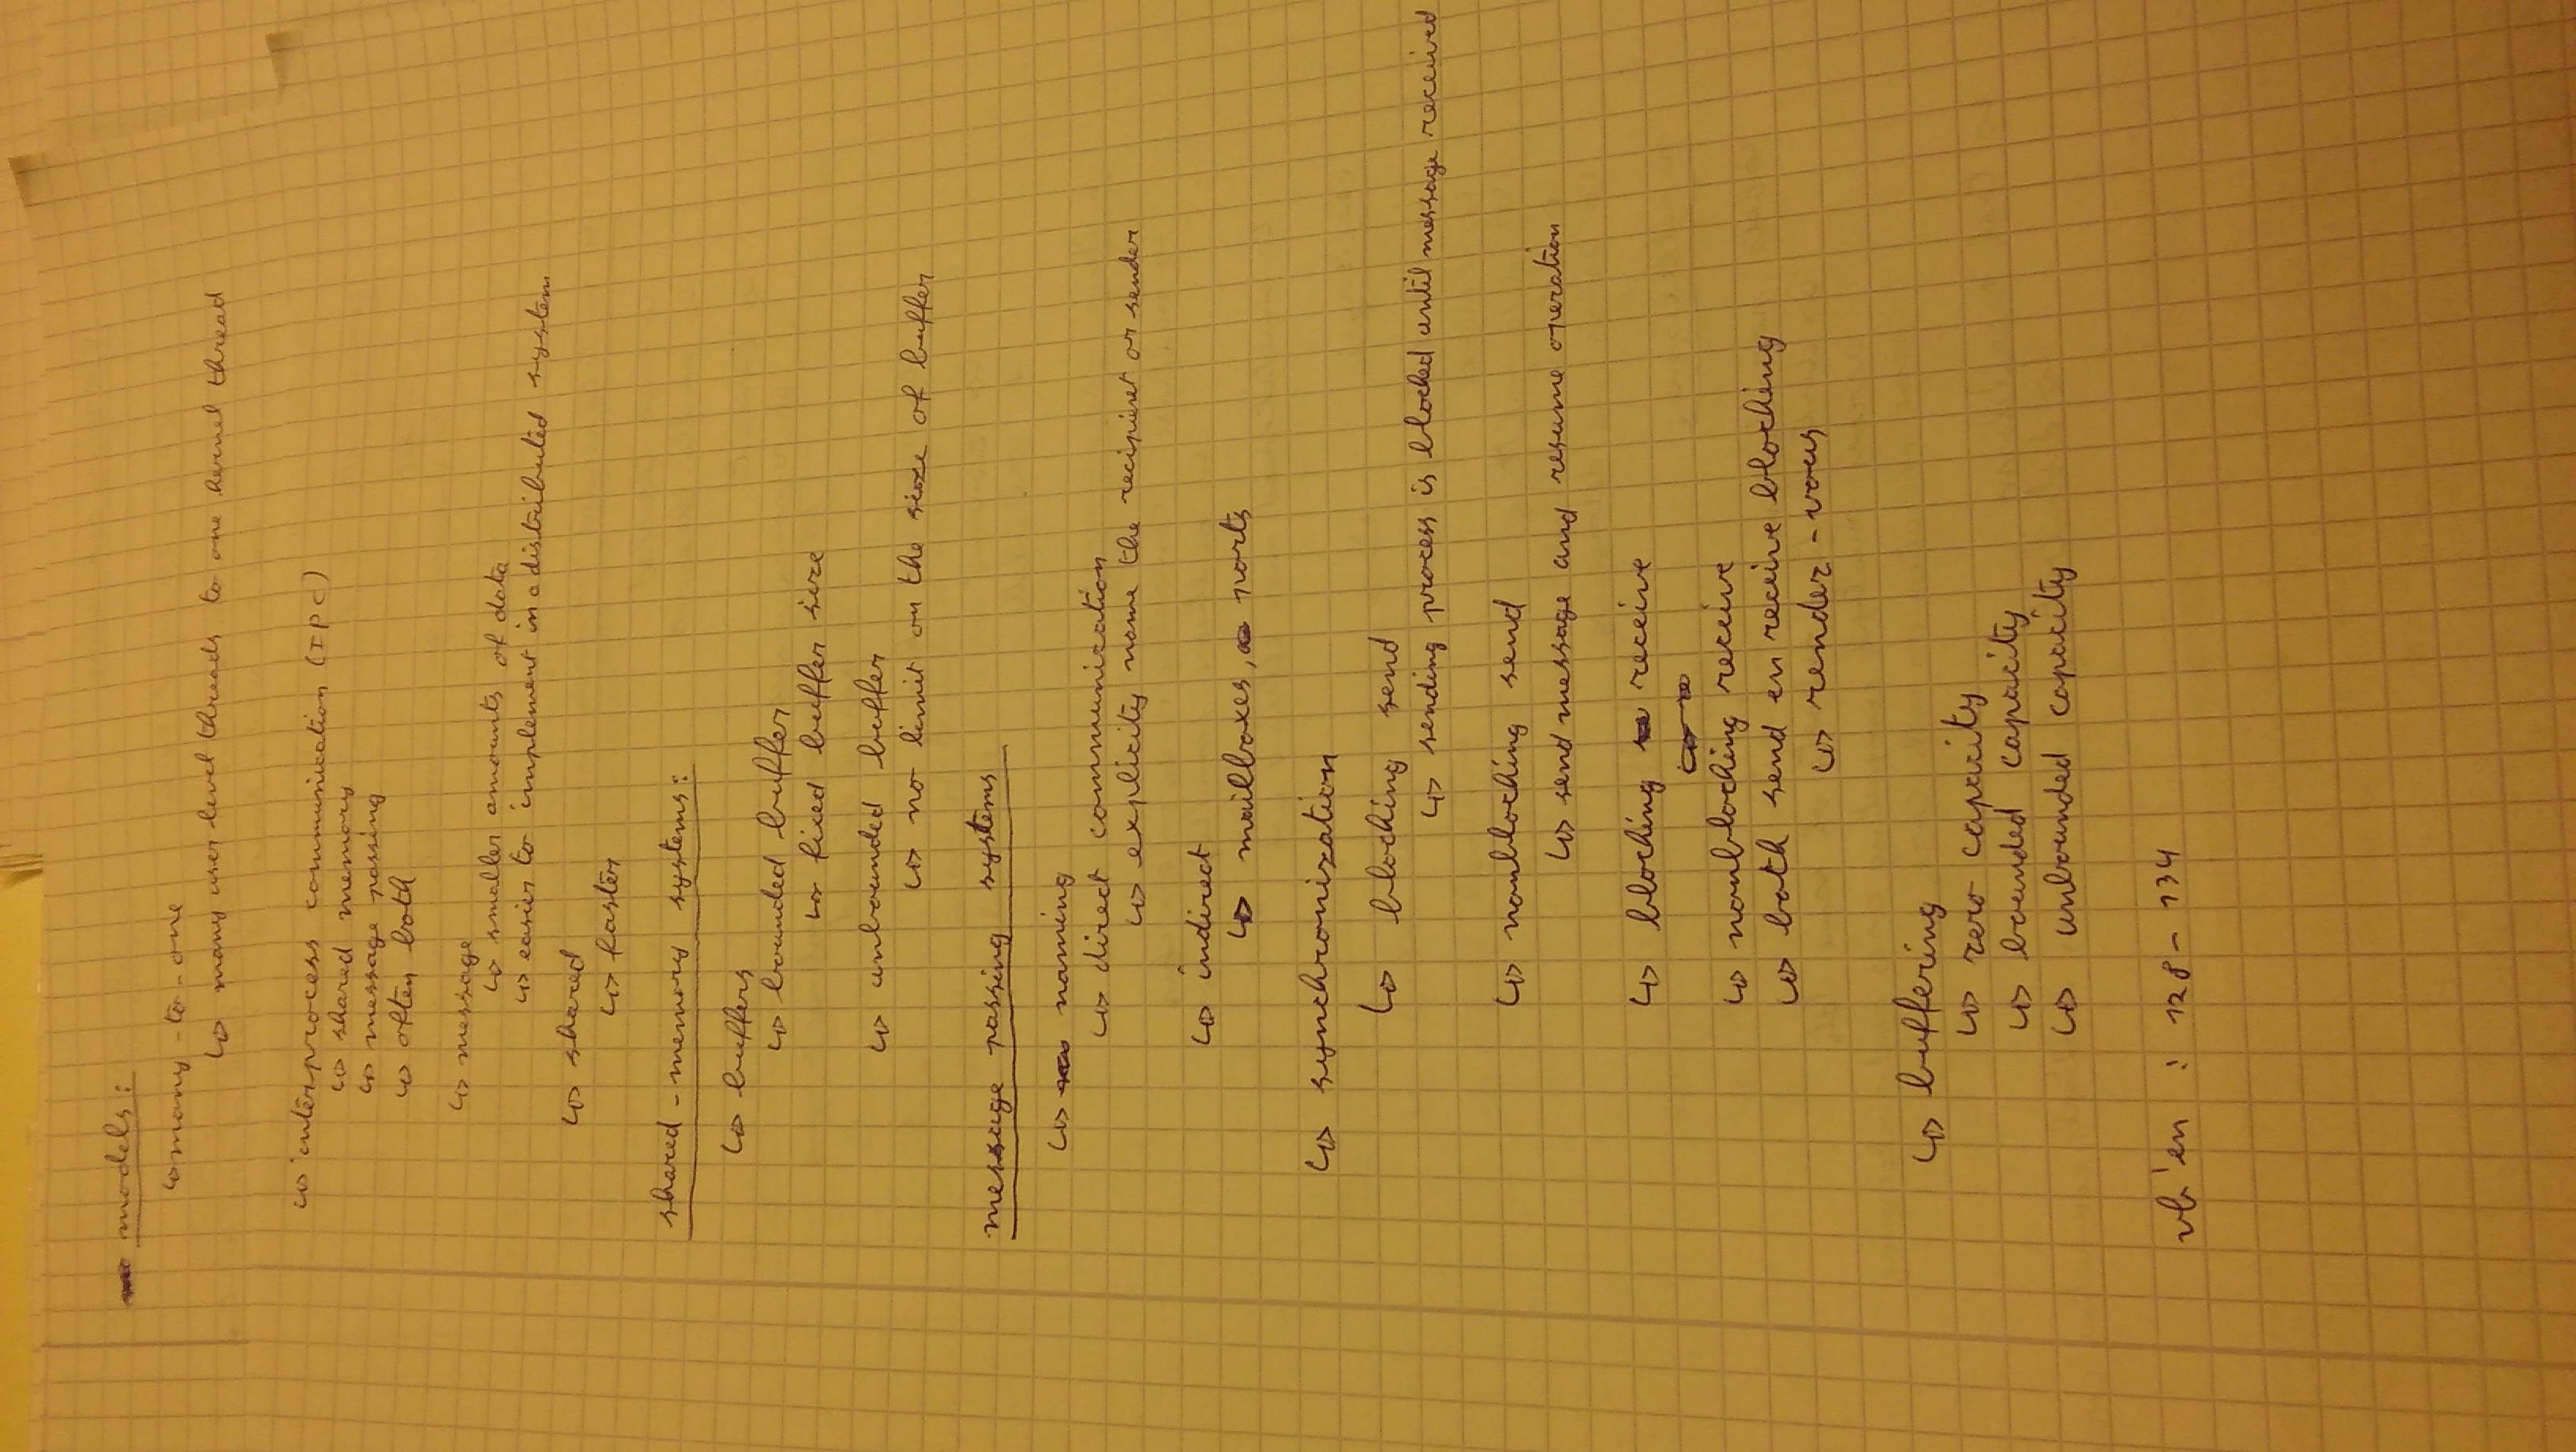 models:
↳ many-to-one
↳ many user level threads to one kernel thread
↳ interprocess communication (IPC)
↳ shared memory
↳ message passing
↳ often both
↳ message
↳ smaller amounts of data
↳ easier to implement in a distributed system
↳ shared
↳ faster
shared-memory systems:
↳ buffers
↳ bounded buffer
↳ fixed buffer size
↳ unbounded buffer
↳ no limit on the size of buffer
message passing systems
↳ naming
↳ direct communication
↳ explicity name the recipient or sender
↳ indirect
↳ mailboxes, ports
↳ synchronization
↳ blocking send
↳ sending process is blocked until message received
↳ nonblocking send
↳ send message and resume operation
↳ blocking receive
↳ nonblocking receive
↳ both send en receive blocking
↳ render-vous
↳ buffering
↳ zero capacity
↳ bounded capacity
↳ unbounded capacity
vb'en : 128-134